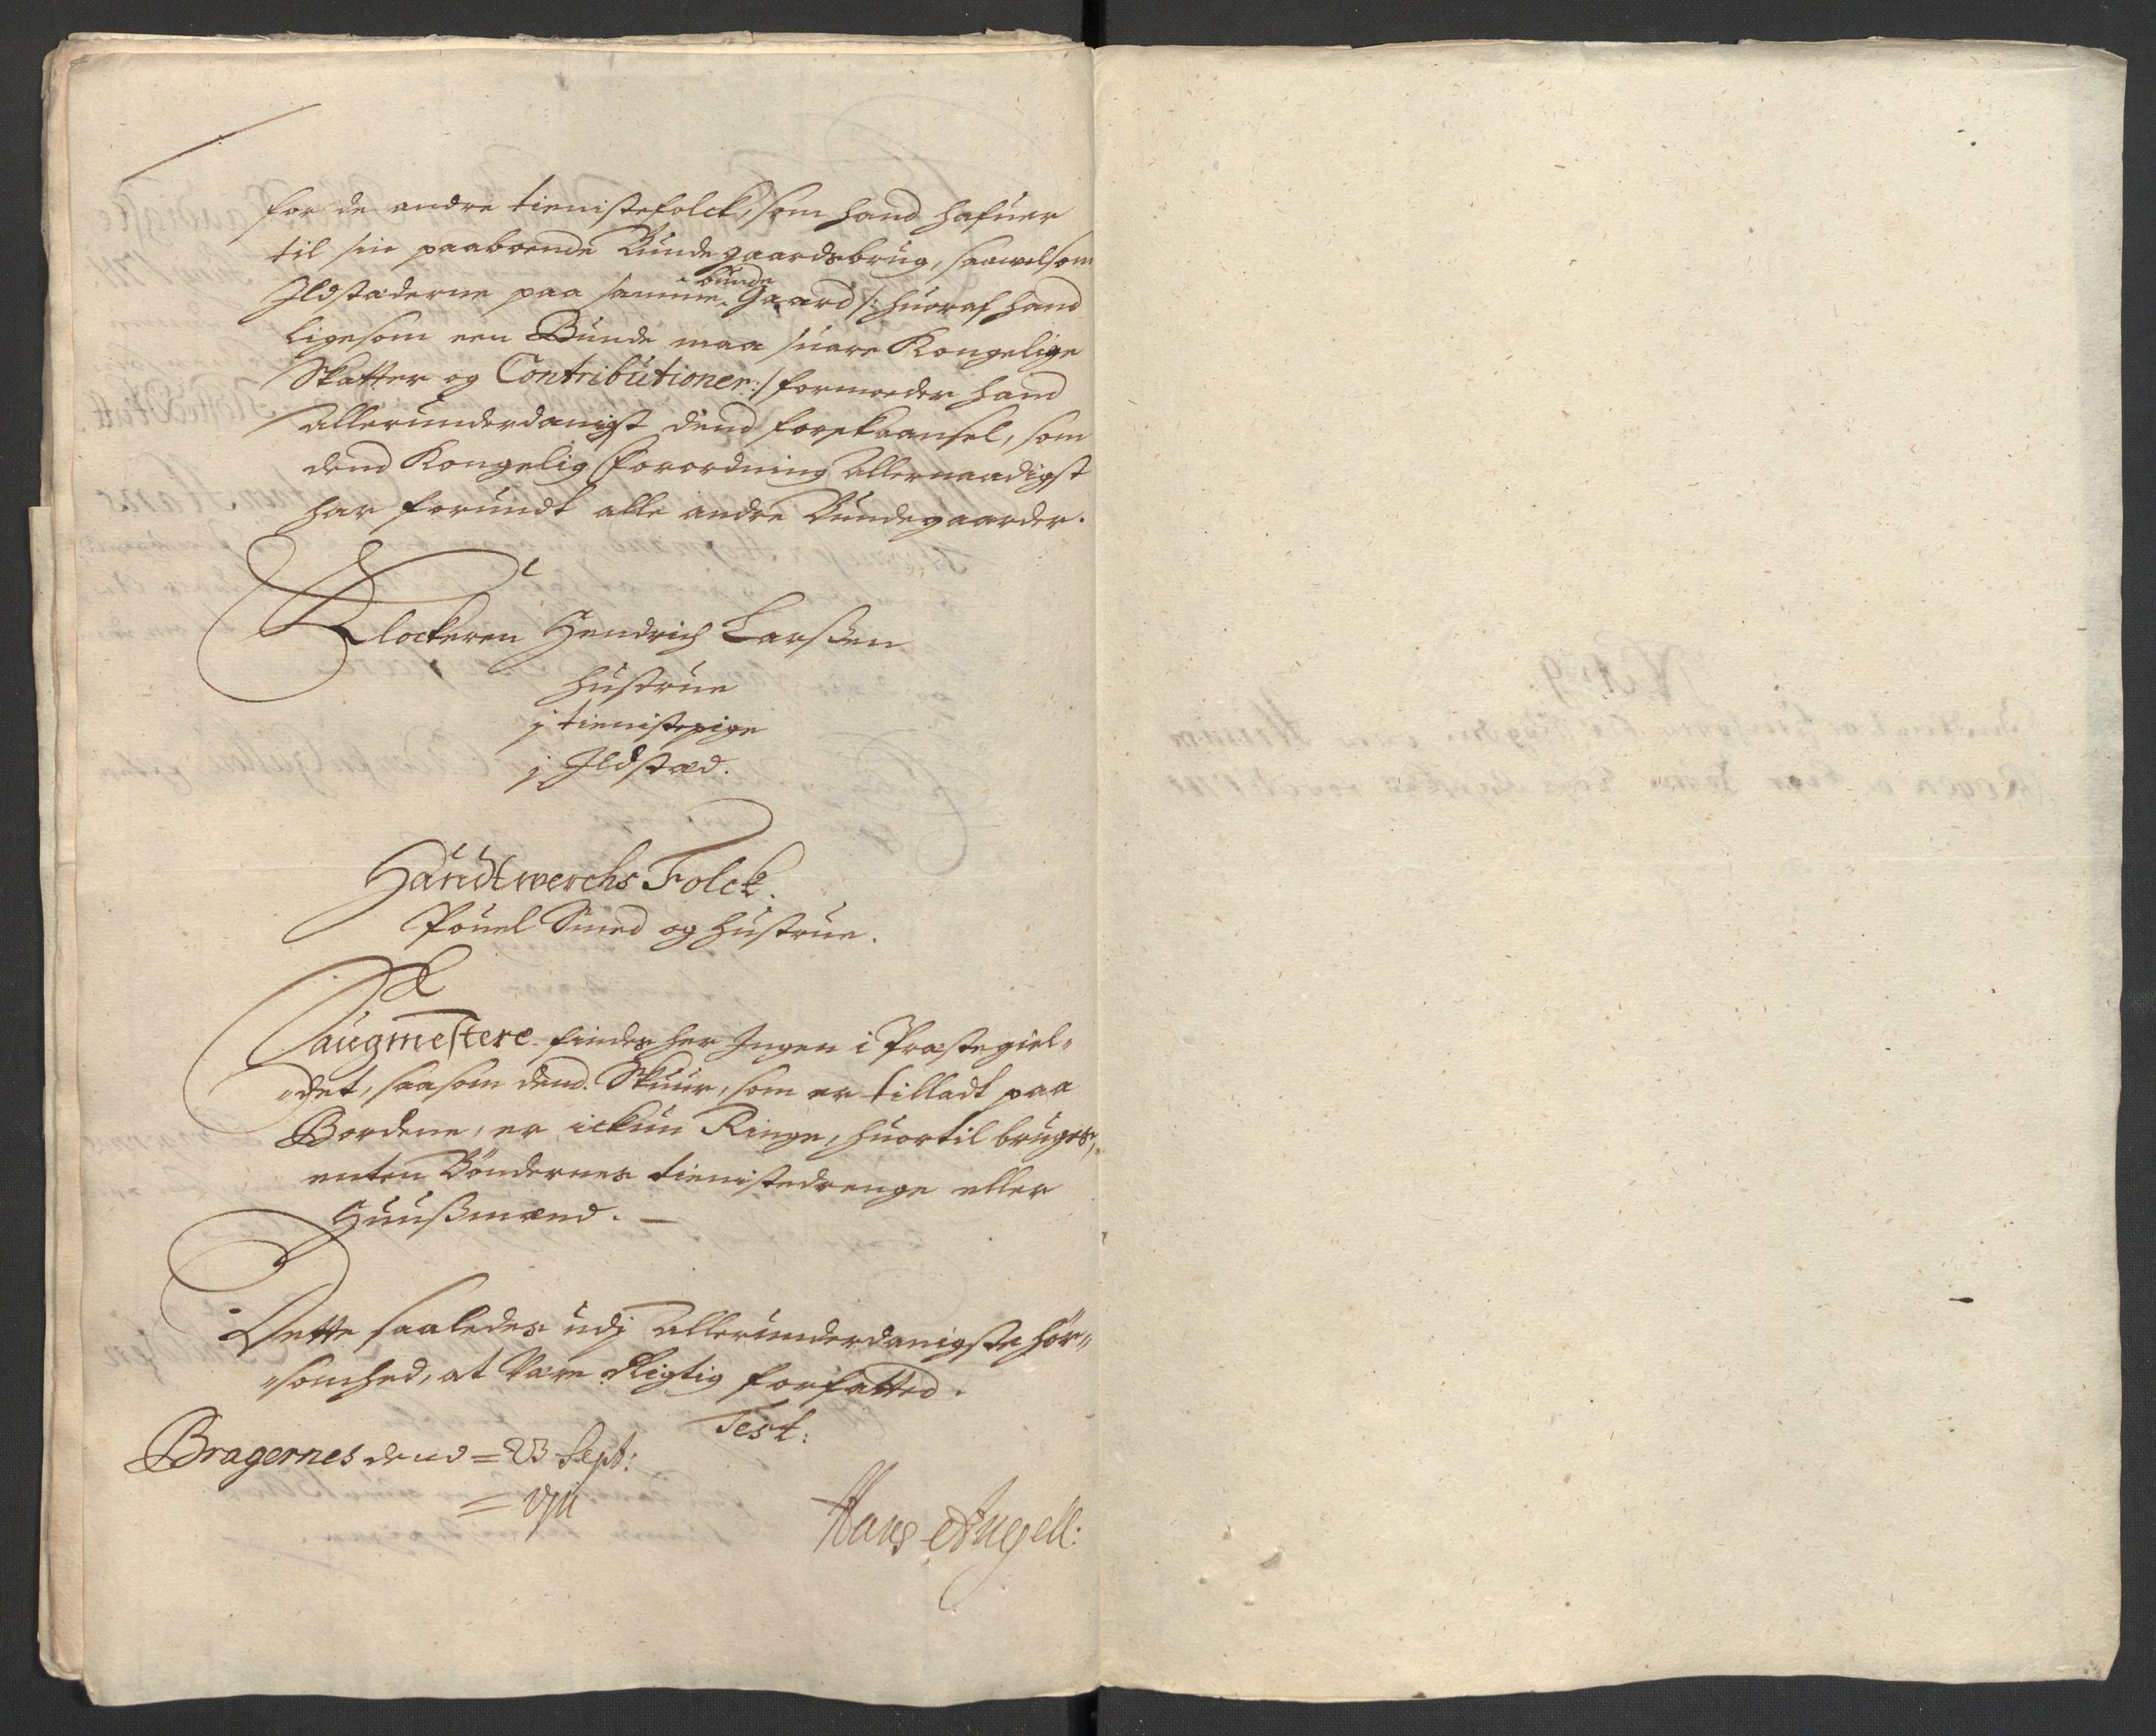 for de andre tienistefolck, som hand hafuer
til sin paaboende Bundegaardsbrug, saavelsom
Ildstæderne paa samme bunde Gaard /: huoraf hand
ligesom een Bunde maa suare Kongelige
Skatter og Contributioner :/ formoder hand
allerunderdanigst dend forskaansel, som
dend Kongelig Forordning allernaadigst
har forundt alle andre Bundegaarder.
Klockeren Hendrich Larssen
Hustrue
j tienistepige
j Ildstæd.
Handtwerchs Folck.
Pouel Smed og Hustrue.
Saugmestere findes her Ingen i Præstegiel-
det, saasom dend Skuur, som er tilladt paa
Bordene, er ickun Ringe, huortil bruges,
enten Böndernes tienistedrenge eller
Huussmænd.
Dette saaledes udj allerunderdanigste hör-
somhed, at Være Rigtig forfatted.
Test:
Bragernes dend = 23 Sept:
= 1711
Hans Angell: